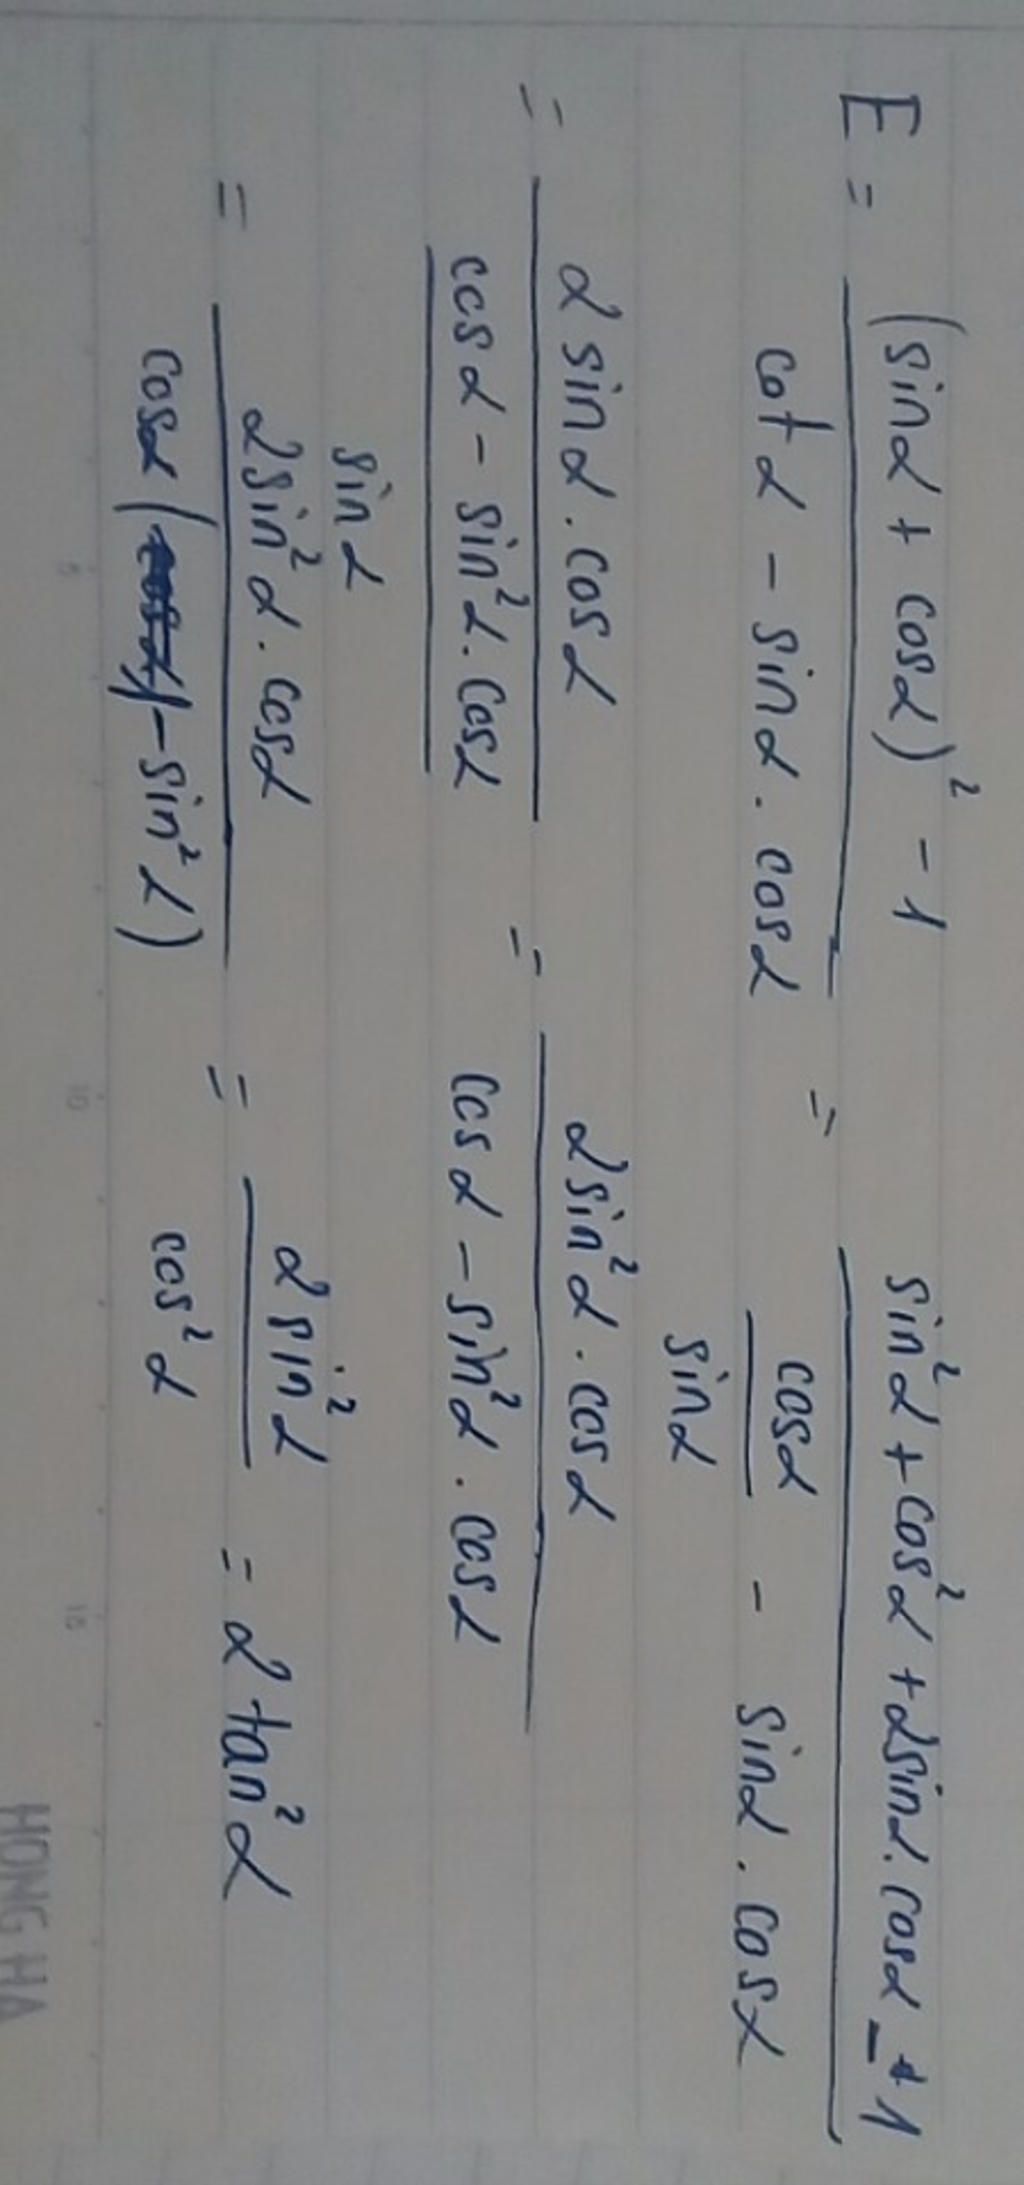 E = (sinα + cosα)² - 1 / cotα - sinα . cosα = sin²α + cos²α + 2sinα . cosα - 1 / cosα / sinα - sinα . cosα
= 2 sinα . cosα / cosα - sin²α . cosα / sinα = 2sin²α . cosα / cosα - sin²α . cosα
= 2sin²α . cosα / cosα (1 - sin²α) = 2sin²α / cos²α = 2 tan²α
5 10 15
HONG HA